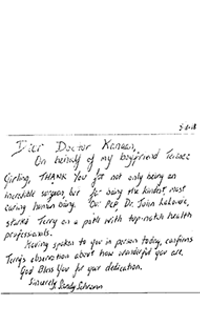 Dear Doctor Kanaan,
On behalf of my boyfriend
THANK YOU for not only being an
incredible surgeon, but for being the kindest, most
caring human being. Our PCP, Dr. John
started Terry on a path with top-notch health
professionals.
Having spoken to you in person today, confirms
Terry's observation about how wonderful you are.
God Bless You for your dedication.
Sincerely,